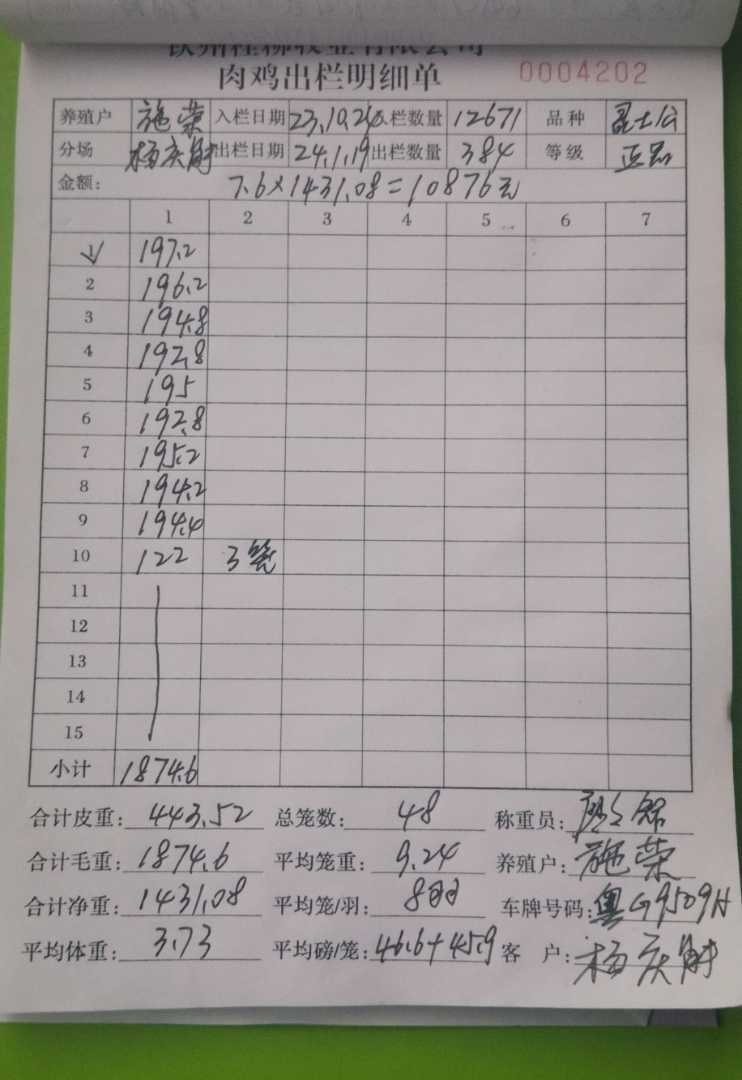 肉鸡出栏明细单 0004202
养殖户 施荣 入栏日期 23.10.20 入栏数量 12671 品种
分场 出栏日期 24.1.19 出栏数量 384 等级 正品
金额: 7.6×1431.08=10876元
1 2 3 4 5 6 7
1 197.2
2 196.2
3 194.8
4 192.8
5 195
6 192.8
7 195.2
8 194.2
9 194.4
10 122 3笼
11
12
13
14
15
小计 1874.6
合计皮重: 443.52 总笼数: 48 称重员:
合计毛重: 1874.6 平均笼重: 9.24 养殖户: 施荣
合计净重: 1431.08 平均笼/羽: 8 车牌号码: 粤G9509H
平均体重: 3.73 平均磅/笼: 46.6+45.9 客户: 杨庆